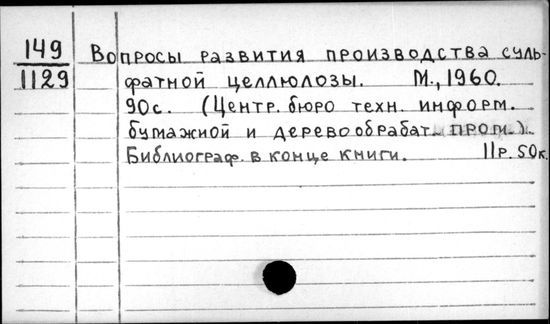 149 Вопросы развития производства суль-
1129 фатной целлюлозы. М., 1960.
90с. (Центр. бюро техн. информ.
бумажной и деревообрабат. пром.).
Библиограф. в конце книги. 11р. 50к.